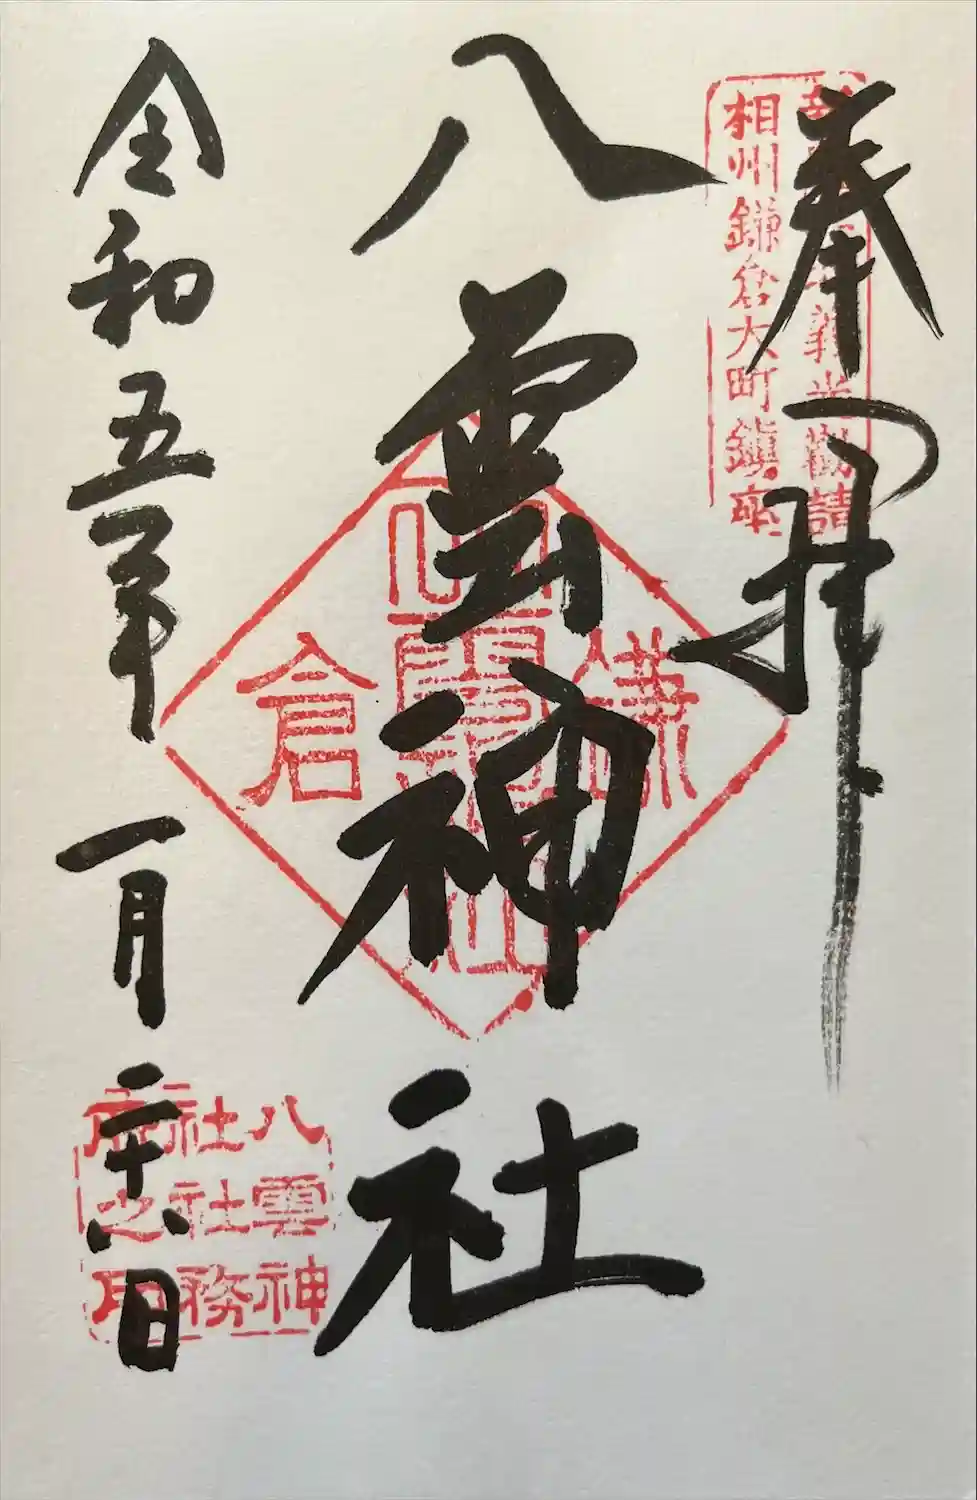 奉拝
義光勧請
相州鎌倉大町鎮座
八雲神社
鎌倉
八雲神
社社務
之印
令和五年一月二十六日